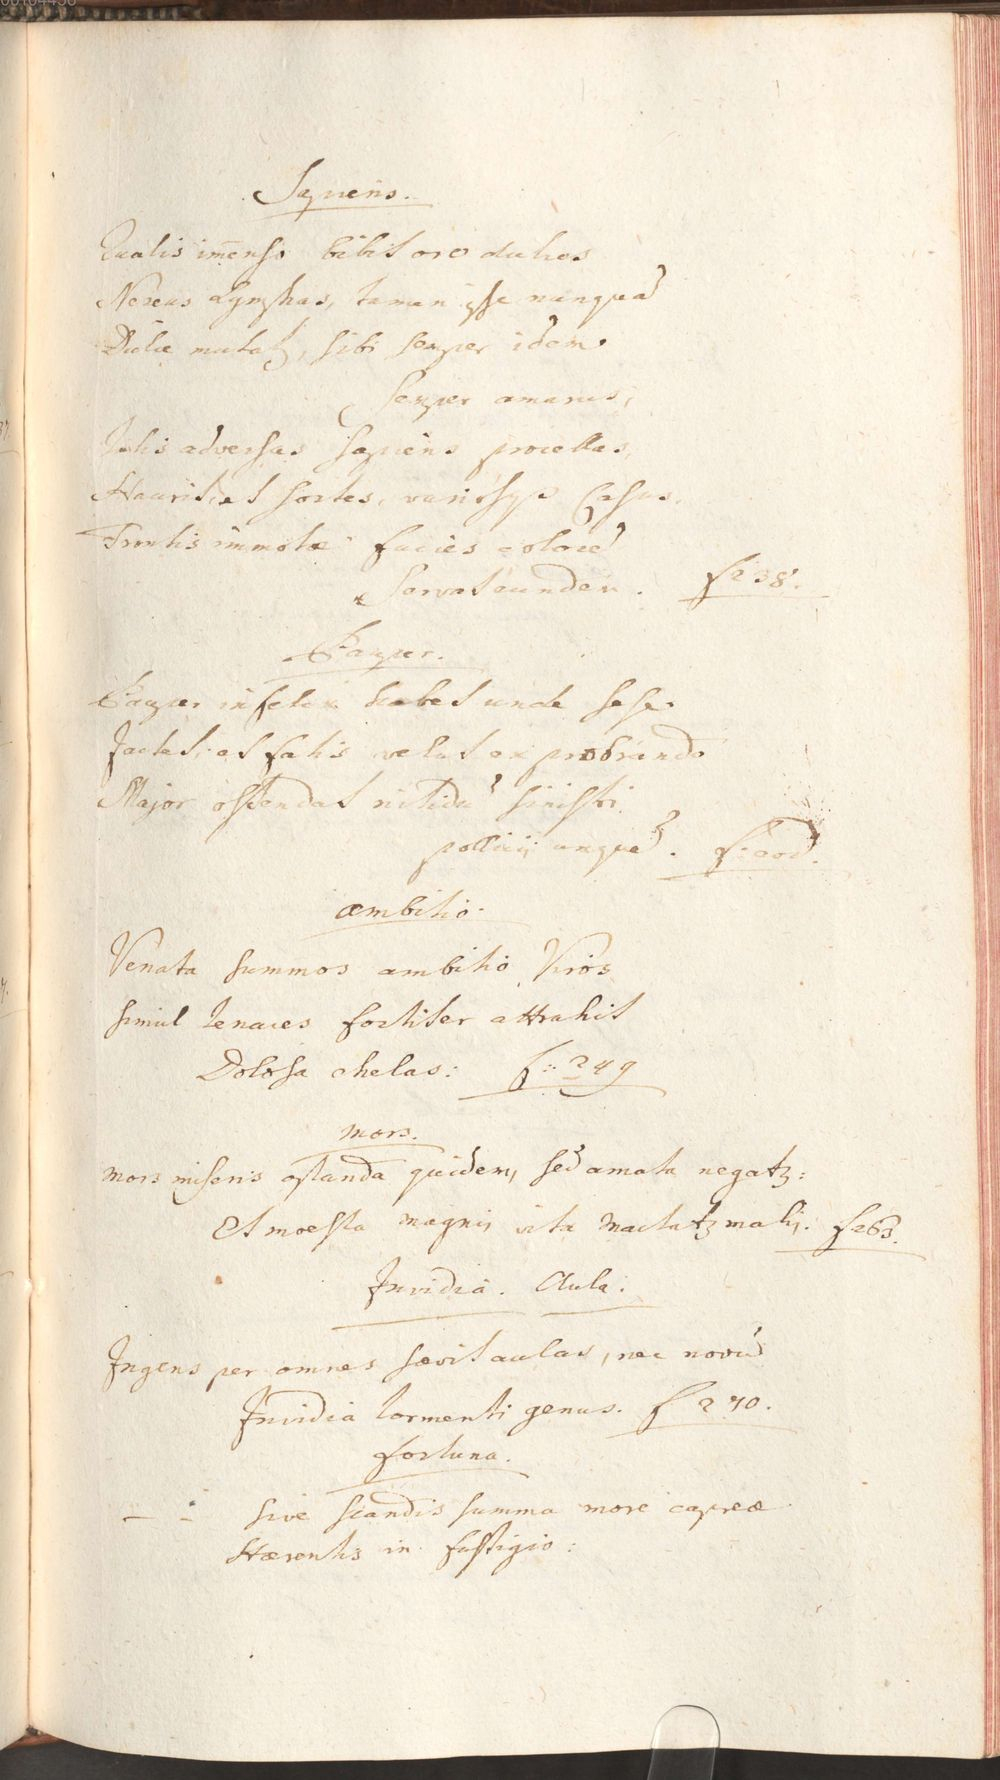 Sapiens.
Qualis im̄enso bibit ore dulces
Nereus Lymphas, tamen ipse nunquã
Dulce mutatʒ, sibi semper idem
Semper amarus,
Talis adversas sapiens procellas,
Haurit, et sortes, variosqꝫ Casus.
Frontis immotæ facies colorẽ
Servat eundem. f 238.
Pauper.
Pauper infelix habet unde sese
Jactet, et fatis velut exprobrando
Major ostendat nitidũ sinistri
pollicis unguẽ. f: eod.
Ambitio.
Venata summos ambitio Viros
simul tenaces fortiter attrahit
Dolosa chelas: f: 249
Mors.
Mors miseris optanda quidem, sed amata negatʒ:
Et moesta magnis vita mactatʒ malis. f 263.
Invidia. Aula.
Ingens per omnes sævit aulas, nec novũ
Invidia tormenti genus. f 270.
Fortuna.
sive scandis summa more capreæ
Hærentis in fastigio: